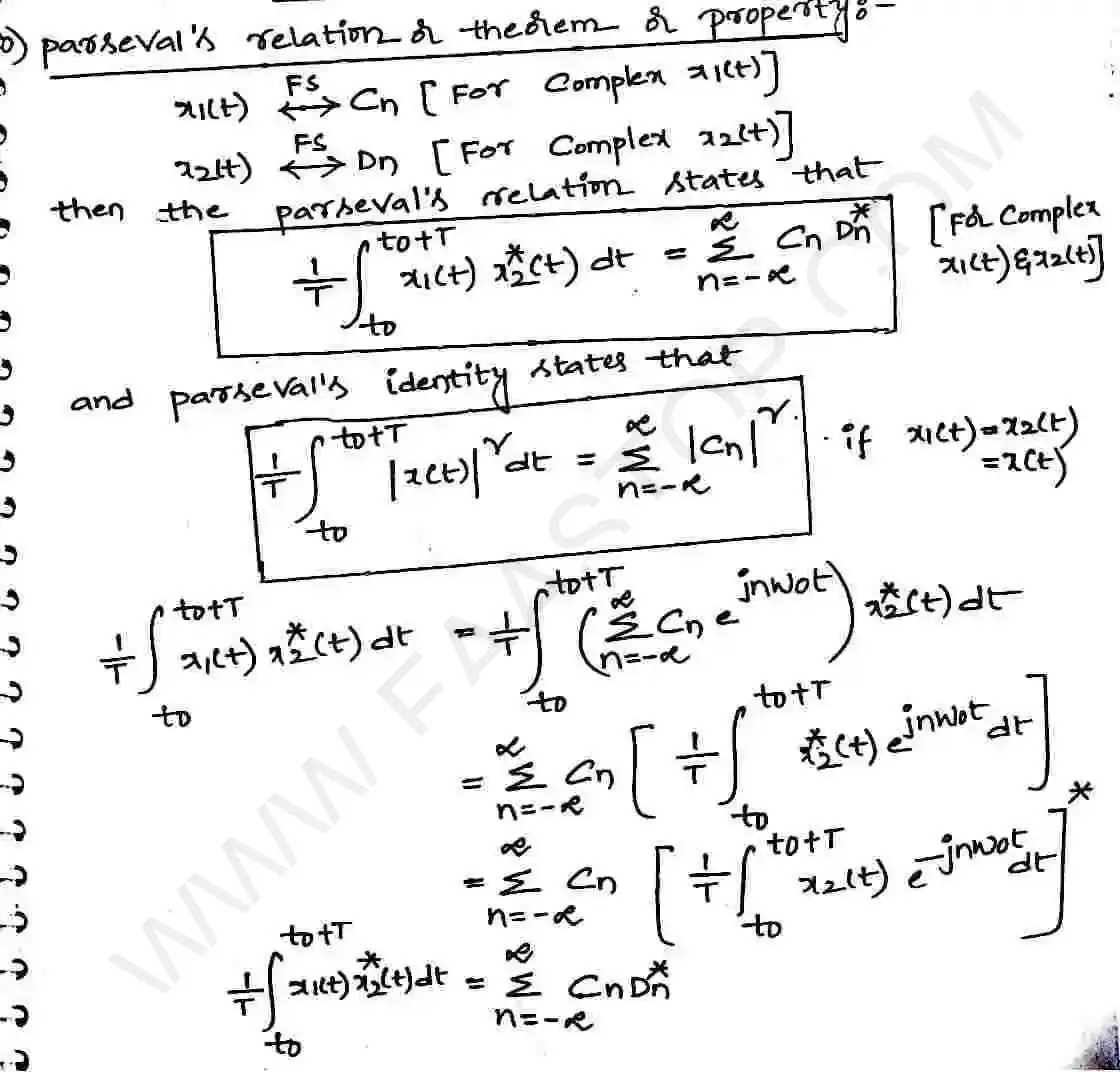 o) parseval's relation or theorem or property:-
x1(t) ←FS→ Cn [For Complex x1(t)]
x2(t) ←FS→ Dn [For Complex x2(t)]
then the parseval's relation states that
1/T ∫_{to}^{to+T} x1(t) x2*(t) dt = Σ_{n=-∞}^{∞} Cn Dn* [For Complex x1(t) & x2(t)]
and parseval's identity states that
1/T ∫_{to}^{to+T} |x(t)|^2 dt = Σ_{n=-∞}^{∞} |Cn|^2. if x1(t)=x2(t) =x(t)
1/T ∫_{to}^{to+T} x1(t) x2*(t) dt = 1/T ∫_{to}^{to+T} (Σ_{n=-∞}^{∞} Cn e^{jnwot}) x2*(t) dt
= Σ_{n=-∞}^{∞} Cn [1/T ∫_{to}^{to+T} x2*(t) e^{jnwot} dt]
= Σ_{n=-∞}^{∞} Cn [1/T ∫_{to}^{to+T} x2(t) e^{-jnwot} dt]*
1/T ∫_{to}^{to+T} x1(t) x2*(t) dt = Σ_{n=-∞}^{∞} Cn Dn*